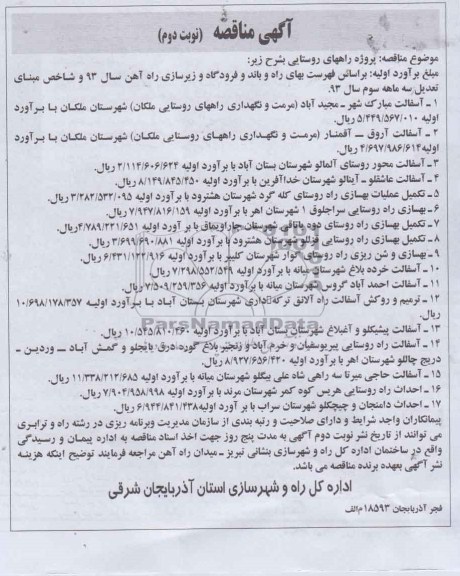 آگهی مناقصه (نوبت دوم)
موضوع مناقصه: پروژه راههای روستایی بشرح زیر:
مبلغ برآورد اولیه: براساس فهرست بهای راه و باند و فرودگاه و زیرسازی راه آهن سال ۹۳ و شاخص مبنای
تعدیل سه ماهه سوم سال ۹۳.
۱ ـ آسفالت مبارک شهر ـ مجید آباد (مرمت و نگهداری راههای روستایی ملکان) شهرستان ملکان با برآورد
اولیه ۵/۴۴۹/۵۶۷/۰۱۰ ریال.
۲ ـ آسفالت آروق ـ آقمنار (مرمت و نگهداری راههای روستایی ملکان) شهرستان ملکان با برآورد
اولیه ۴/۶۹۷/۹۸۶/۶۱۴ ریال.
۳ ـ آسفالت محور روستای آلمالو شهرستان بستان آباد با برآورد اولیه ۲/۱۱۴/۶۰۶/۶۲۴ ریال.
۴ ـ آسفالت عاشقلو ـ آینالو شهرستان خداآفرین با برآورد اولیه ۸/۱۴۹/۸۴۵/۴۵۰ ریال.
۵ ـ تکمیل عملیات بهسازی راه روستای کله گرد شهرستان هشترود با برآورد اولیه ۳/۲۸۲/۵۳۲/۰۹۵ ریال.
۶ ـ بهسازی راه روستایی سراجلوق ۱ شهرستان اهر با برآورد اولیه ۷/۹۴۷/۸۱۶/۱۵۹ ریال.
۷ ـ تکمیل بهسازی راه روستای دوه یاتاقی شهرستان چاراویماق با برآورد اولیه ۴/۷۸۹/۲۲۱/۶۵۱ ریال.
۸ ـ تکمیل بهسازی راه روستایی توللو شهرستان هشترود با برآورد اولیه ۳/۶۹۹/۶۹۰/۸۸۱ ریال.
۹ ـ بهسازی و شن ریزی راه روستای گوار شهرستان کلیبر با برآورد اولیه ۶/۴۳۱/۱۲۲/۹۱۶ ریال.
۱۰ ـ آسفالت خرده بلاغ شهرستان میانه با برآورد اولیه ۷/۲۹۸/۵۵۲/۵۴۹ ریال.
۱۱ ـ آسفالت احمد آباد گروس شهرستان میانه با برآورد اولیه ۷/۵۰۹/۲۵۹/۳۵۶ ریال.
۱۲ ـ ترمیم و روکش آسفالت راه آلانق ترکه داری شهرستان بستان آباد با برآورد اولیه ۱۰/۶۹۸/۱۷۸/۳۵۷
ریال.
۱۳ ـ آسفالت پیشیکلو و آغبلاغ شهرستان بستان آباد با برآورد اولیه ۱۰/۵۴۵/۸۰۱/۳۶۰ ریال.
۱۴ ـ آسفالت راه روستایی پیریوسفیان و خرم آباد و زنجیر بلاغ گورد درق بایجلو و گمش آباد ـ وردین ـ
دریج چاللو شهرستان اهر با برآورد اولیه ۸/۹۳۷/۶۵۶/۴۲۰ ریال.
۱۵ ـ آسفالت حاجی میرتا سه راهی شاه علی بیگلو شهرستان میانه با برآورد اولیه ۱۱/۳۳۸/۳۱۲/۶۸۵ ریال.
۱۶ ـ احداث راه روستایی هریس کوه کمر شهرستان مرند با برآورد اولیه ۷/۹۰۴/۹۵۸/۹۹۸ ریال.
۱۷ ـ احداث دامنجان و چیچکلو شهرستان سراب با برآورد اولیه ۶/۹۴۴/۸۴۱/۴۳۸ ریال.
پیمانکاران واجد شرایط و دارای صلاحیت و رتبه بندی از سازمان مدیریت وبرنامه ریزی در رشته راه و ترابری
می توانند از تاریخ نشر نوبت دوم آگهی به مدت پنج روز جهت اخذ اسناد مناقصه به اداره پیمان و رسیدگی
واقع در ساختمان اداره کل راه و شهرسازی بنشانی تبریز ـ میدان راه آهن مراجعه فرمایند توضیح اینکه هزینه
نشر آگهی بعهده برنده مناقصه می باشد.
اداره کل راه و شهرسازی استان آذربایجان شرقی
فجر آذربایجان ۱۸۵۹۳ م الف
ParsNamadData